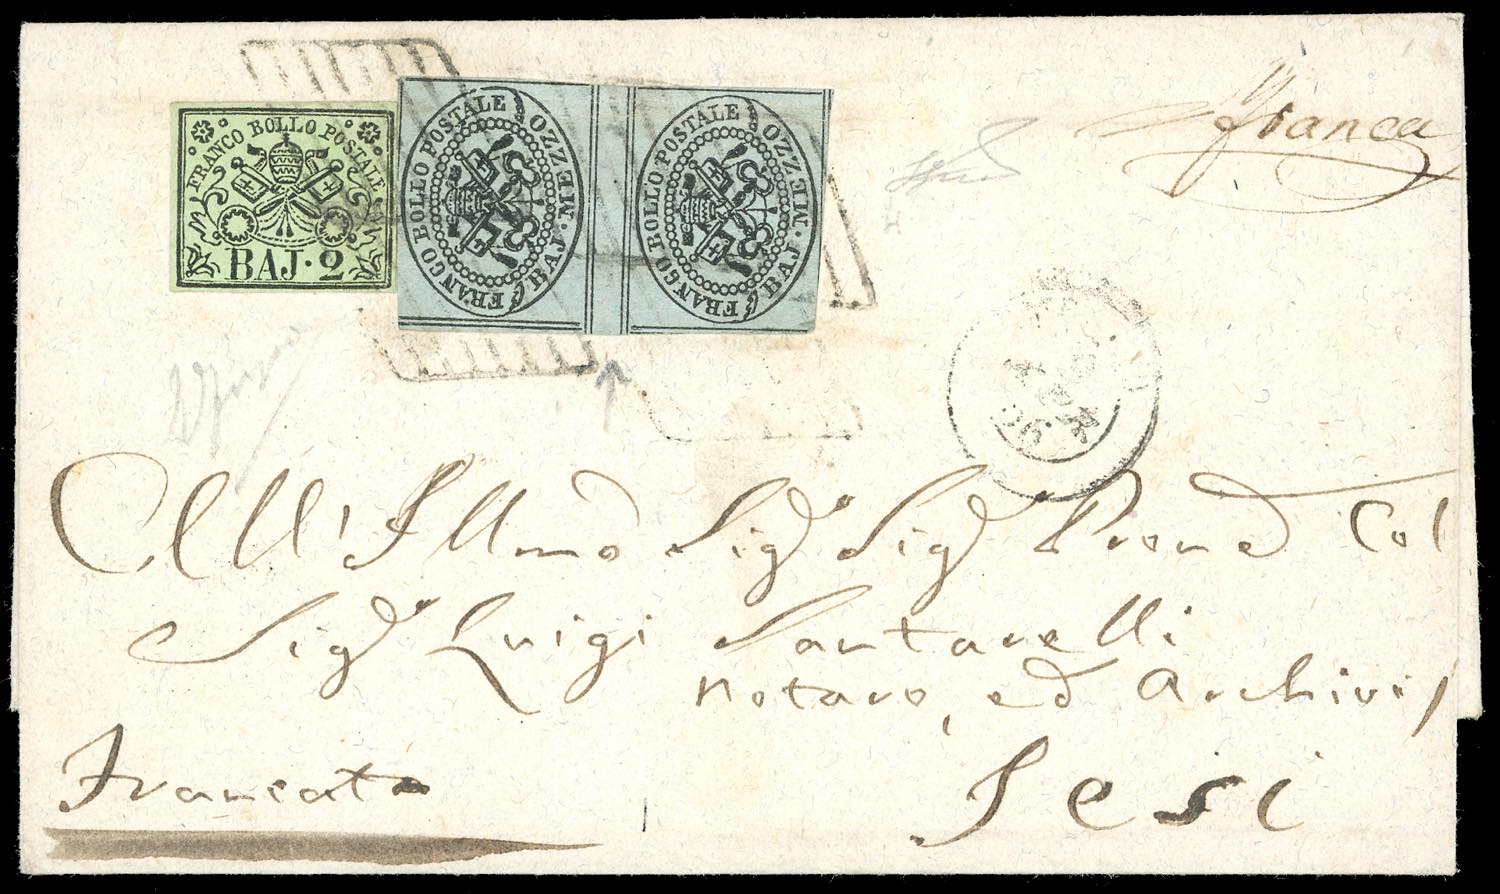 FRANCO BOLLO POSTALE
BAJ·2
FRANCO BOLLO POSTALE
MEZZO·BAJ
FRANCO BOLLO POSTALE
MEZZO·BAJ
franca
All' Illmo Sigr Sigr Prone Col
Sigr Luigi Santarelli
Notaro, ed Archivis
Francata
Jesi